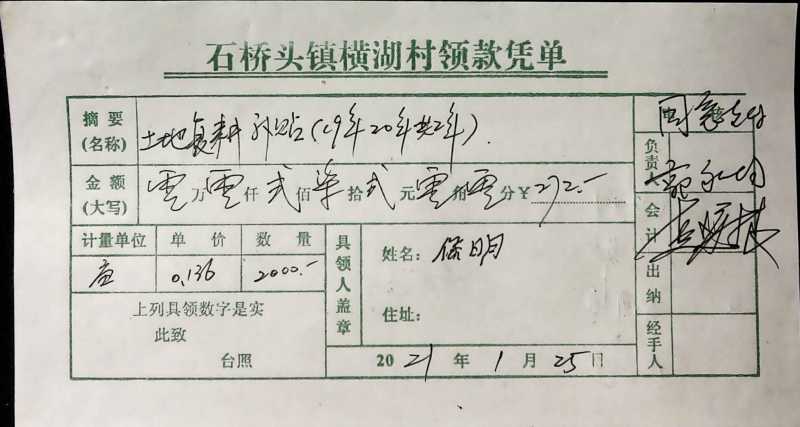 石桥头镇横湖村领款凭单
摘要(名称) 土地复耕补贴(19年20年共2年)
金额(大写) 零万零仟贰佰柒拾贰元零角零分¥272.-
计量单位 单价 数量
亩 0.136 2000.-
上列具领数字是实
此致
台照
具领人盖章
姓名: 明
住址:
2021年1月25日
负责人
会计
出纳
经手人